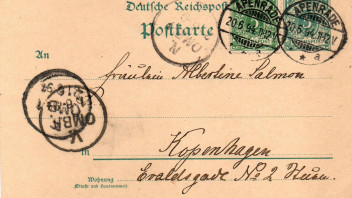 Deutsche Reichspost
Postkarte
APENRADE
20.6.94.11-12V.
* a
APENRADE
20.6.94.11-12V.
* a
An
Fräulein Albertine Salmon
in
Kopenhagen
Wohnung
(Straße und Hausnummer)
Evaldsgade No 2